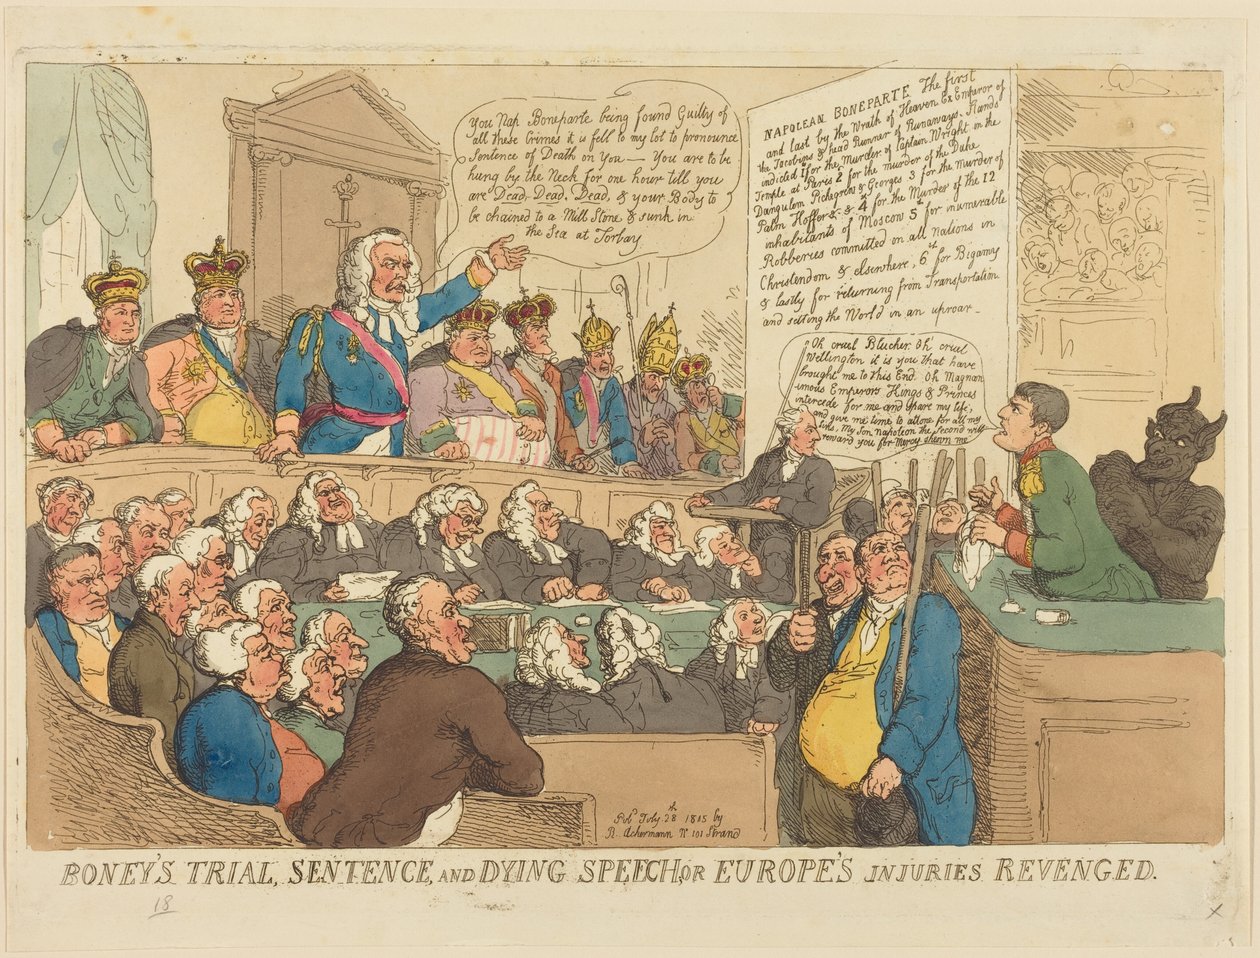 You Nap Boneparte being found Guilty of
all these Crimes it is fell to my lot to pronounce
Sentence of Death on You — You are to be
hung by the Neck for one hour till you
are Dead, Dead, Dead, & your Body to
be chained to a Mill Stone & sunk in
the Sea at Torbay
NAPOLEAN BONEPARTE The first
and last by the Wrath of Heaven Ex Emperor of
the Jacobins & head Runner of Runaways, Stands
indicted 1st for the Murder of Captain Wright in the
Temple at Paris 2 for the murder of the Duke
Dangulem Pichegrew & Georges 3 for the Murder of
Palm Hoffer &c & 4 for the Murder of the 12
inhabitants of Moscow 5th for inumerable
Robberies committed on all Nations in
Christendom & elsewhere, 6th for Bigamy
& lastly for returning from Transportation
and setting the World in an uproar —
Oh cruel Blucher. Oh cruel
Wellington it is you that have
brought me to this End. Oh Magnan
imous Emperors Kings & Princes
intercede for me and spare my life,
and give me time to attone for all my
Sins, My Son Napoleon the Second will
reward you for Mercy shewn me
Pub July 28th 1815 by
R. Ackermann No 101 Strand
BONEY'S TRIAL, SENTENCE, AND DYING SPEECH, OR EUROPE'S INJURIES REVENGED.
18
x